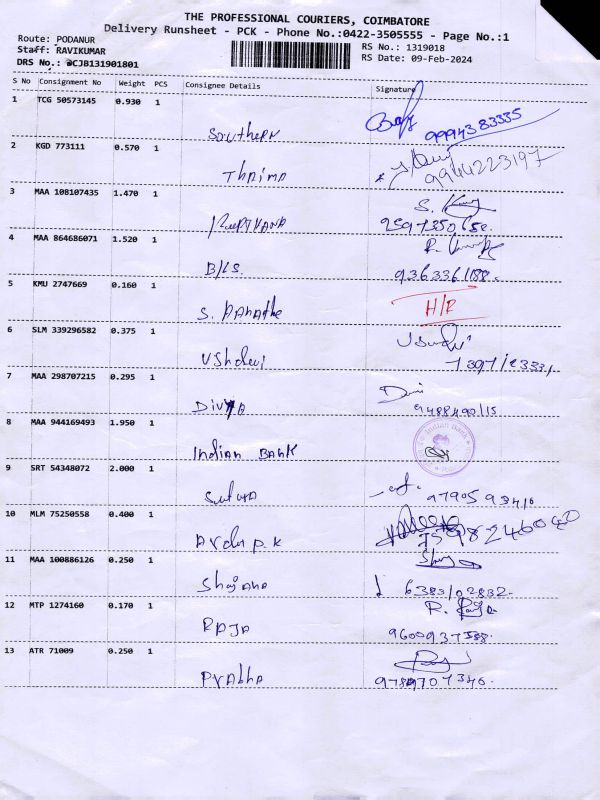 THE PROFESSIONAL COURIERS, COIMBATORE
Delivery Runsheet - PCK - Phone No.:0422-3505555 - Page No.:1
Route: PODANUR
Staff: RAVIKUMAR
RS No.: 1319018
DRS No.: @CJB131901801
RS Date: 09-Feb-2024
S No Consignment No Weight PCS Consignee Details Signature
1 TCG 50573145 0.930 1
Southern 9994383335
2 KGD 773111 0.570 1
Thaima 9944223197
3 MAA 108107435 1.470 1
S.
Keerthana
4 MAA 864686071 1.520 1
R.
B/LS.
5 KMU 2747669 0.160 1
S. H/R
6 SLM 339296582 0.375 1
Ushdevi
7 MAA 298707215 0.295 1
Divya
8 MAA 944169493 1.950 1
Indian Bank
Indian Bank
9 SRT 54348072 2.000 1
10 MLM 75250558 0.400 1
P.K
11 MAA 100886126 0.250 1
Shajana 6383102832.
12 MTP 1274160 0.170 1
R. Raja
RAJA
13 ATR 71009 0.250 1
Prabha 9789707340.